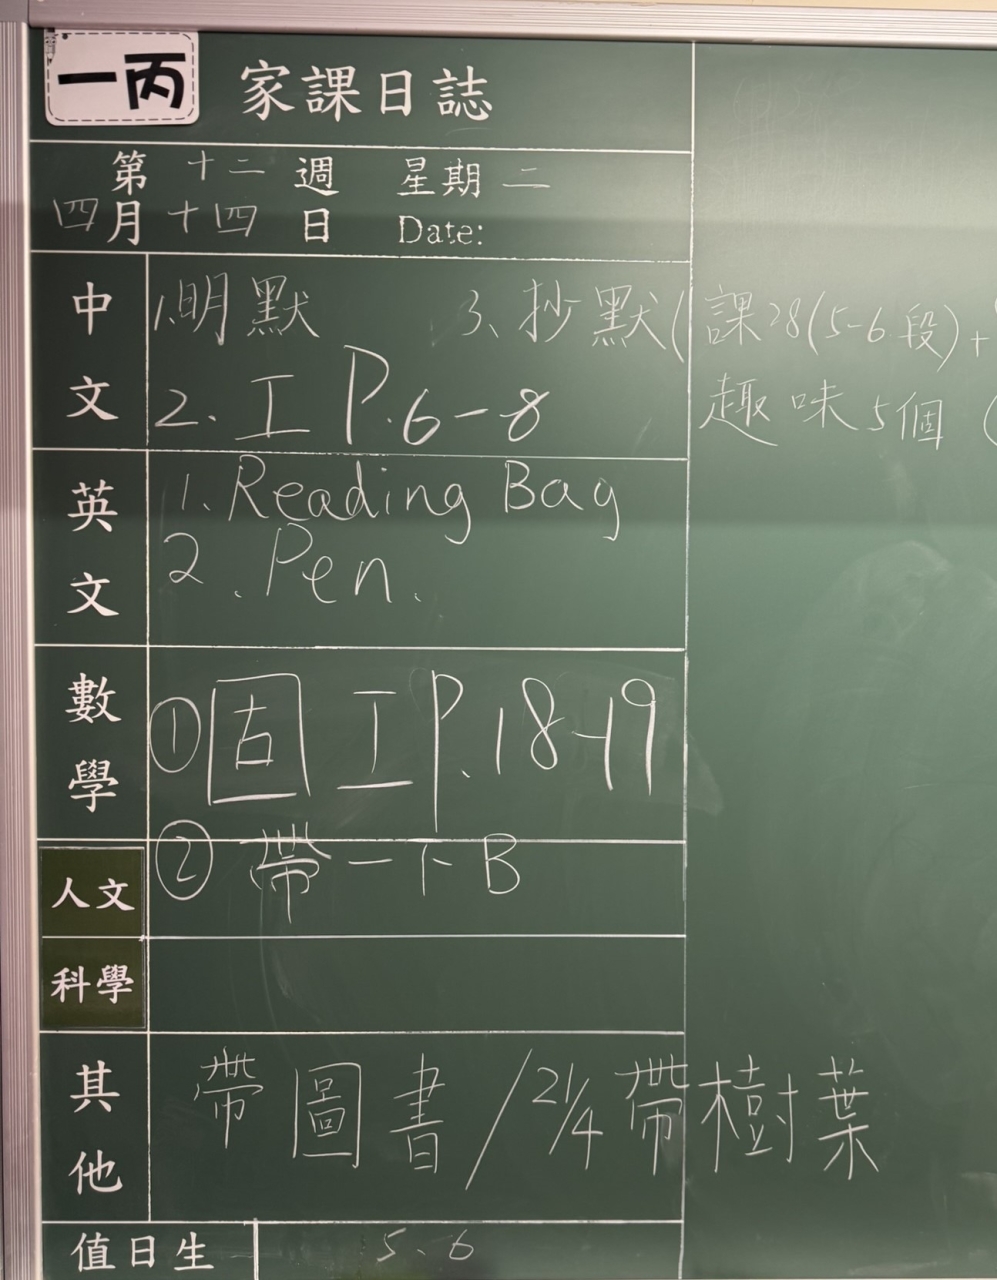 一丙 家課日誌
第 十二 週 星期 二
四月 十四 日 Date:
中文
1.明默 3、抄默(課28(5-6段)+
2. 工 P.6-8 趣味5個 (
英文
1. Reading Bag
2. Pen.
數學
① 固 工 P.18-19
② 帶一下B
人文
科學
其他
帶圖書/21/4帶樹葉
值日生 5、6